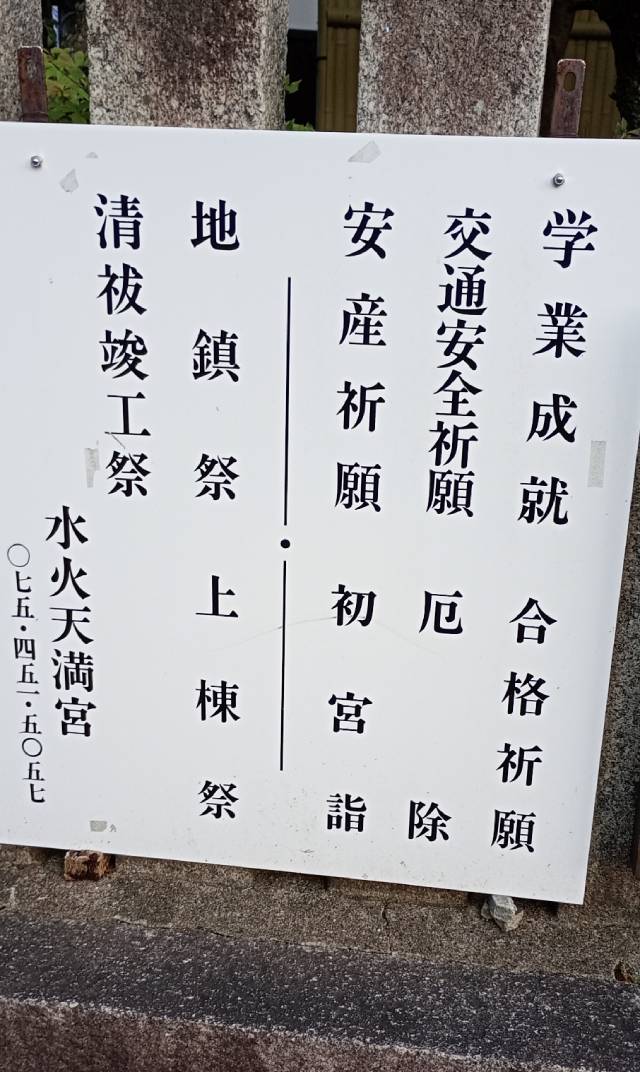 学業成就 合格祈願
交通安全祈願 厄除
安産祈願 初宮詣
地鎮祭 上棟祭
清祓竣工祭
水火天満宮
〇七五・四五一・五〇五七